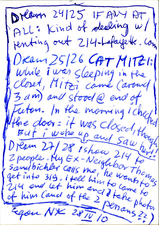 Dream 24/25 IF ANY AT
ALL: Kind of dealing w/
renting out 214 Lafayette.com
Dream 25/26 CAT MITZI:
while i was sleeping in the
closet, Mitzi came (around
3 am) and stood @ end of
futon. In the morning i checked
the door: it was closed, though,
But i woke up and saw her!
Dream 27/28 i show 214 to
2 people. My Ex-Neighbor Thomas
Sandbichler calls me, he wants to
get into 313. i tell him to come to
214 and let him and take photos
of him (and of the 2 persons??)
NYC 28 IV 10